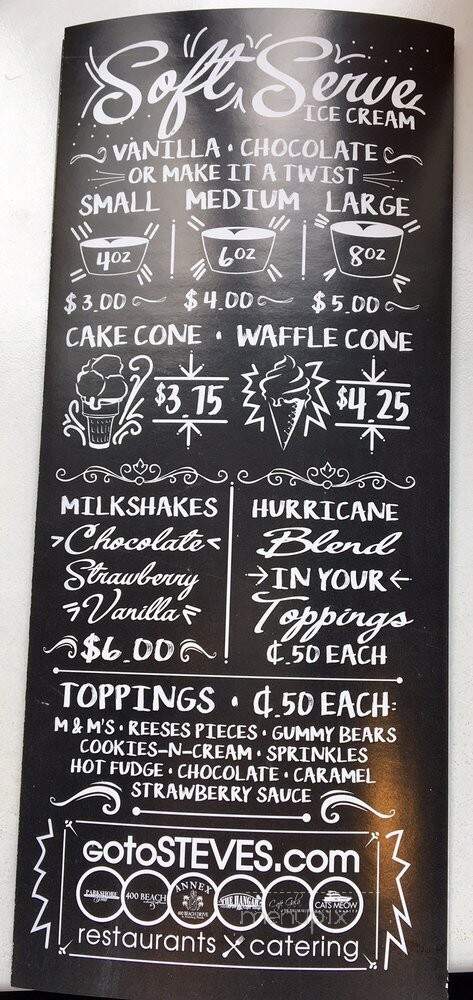 Soft Serve
ICE CREAM
VANILLA • CHOCOLATE
OR MAKE IT A TWIST
SMALL MEDIUM LARGE
4OZ 6OZ 8OZ
$3.00 $4.00 $5.00
CAKE CONE • WAFFLE CONE
$3.75 $4.25
MILKSHAKES
Chocolate
Strawberry
Vanilla
$6.00
HURRICANE
Blend
IN YOUR
Toppings
¢.50 EACH
TOPPINGS • ¢.50 EACH:
M & M'S • REESES PIECES • GUMMY BEARS
COOKIES-N-CREAM • SPRINKLES
HOT FUDGE • CHOCOLATE • CARAMEL
STRAWBERRY SAUCE
GOTOSTEVES.com
PARKSHORE 400 BEACH ANNEX THE HANGAR CATS MEOW
menupix
restaurants catering